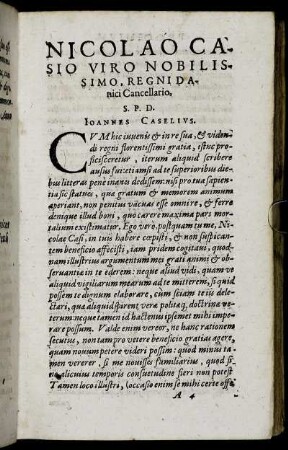 NICOLAO CA-
SIO VIRO NOBILIS-
SIMO, REGNI DA-
nici Cancellario,
S. P. D.
IOANNES CASELIVS.
CVM hic iuuenis & in re sua, & viden-
di regni florentissimi gratia, istuc pro-
ficisceretur, iterum aliquid scribere
ausus fui: etiamsi ad te superioribus die-
bus litteras pene inanis dedissem: nisi pro tua sapien-
tia sic statues, qua gratum & memorem animum
aperiant, non penitus vacuas esse omnire, & ferre
denique illud boni, quo carere maxima pars mor-
talium existimatur. Ego vero, postquam tu me, Ni-
colae Casi, in tuis habere cœpisti, & non suspican-
tem beneficio affecisti, iam pridem cogitaui, quod-
nam illustrius argumentum mei grati animi & ob-
seruantiæ in te ederem: neque aliud vidi, quam vt
aliquid vigiliarum mearum ad te mitterem, si quid
possem te dignum elaborare, cum sciam te iis dele-
ctari, qua aliquid spirent veræ politeq; doctrinæ ve-
terum: neque tamen id hactenus ipsemet mihi impe-
rare possum. Valde enim vereor, ne hanc rationem
secutus, non tam pro vetere beneficio gratias agere,
quam nouum petere videri possim: quod minus ta-
men vererer, si me nouisses familiarius, quod si-
ne alicuius temporis consuetudine fieri non potest
Tamen loco illustri, (occasio enim se mihi certe offe-
A 4